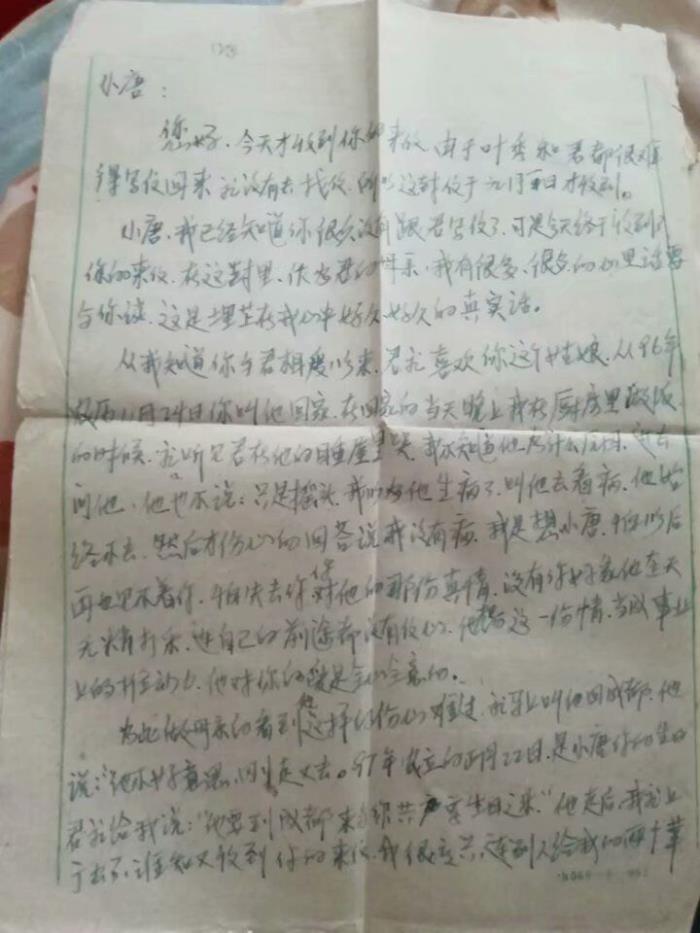 小唐：
您好。今天才收到你的来信，由于叶秀和君都很难
得写信回来，我没有去找信，所以这封信于元月 日才收到。
小唐，我已经知道你很久没有跟君写信了，可是今天终于收到了
你的来信，在这封里，你 君的 乐，我有很多、很多的心里话要
与你谈，这是埋在我心中好久好久的真实话。
从我知道你与君相处以来，君就喜欢你这个姑娘，从96年
农历11月24日你叫他回家，在回家的当天晚上我在厨房里做饭
的时候，就听见君在他的睡屋里哭，我不知道他为什么原因，进去
问他，他也不说：只是摇头，我以为他生病了，叫他去看病，他始
终不去，然后才伤心的回答说我没有病，我是想小唐，怕以后
再也见不着你，怕失去你对他的那份真情，没有你好象他在天
无精打采，连自己的前途都没有信心，他把这一份情，当成事业
上的 动力，他对你的爱是全心全意的。
为此做母亲的看到他这样的伤心难过，就马上叫他回成都，他
说："他不好意思，回来走又去。97年 的正月22日，是小唐你的生日
君就给我说："他要到成都来与你共度生日之乐"他走后，我就上
广去了，谁知又收到你的来信，我很高兴，连别人给我的两个苹